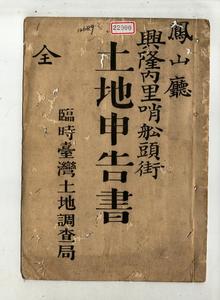 鳳山廳
興隆內里哨船頭街
土地申告書
臨時臺灣土地調查局
全
22900